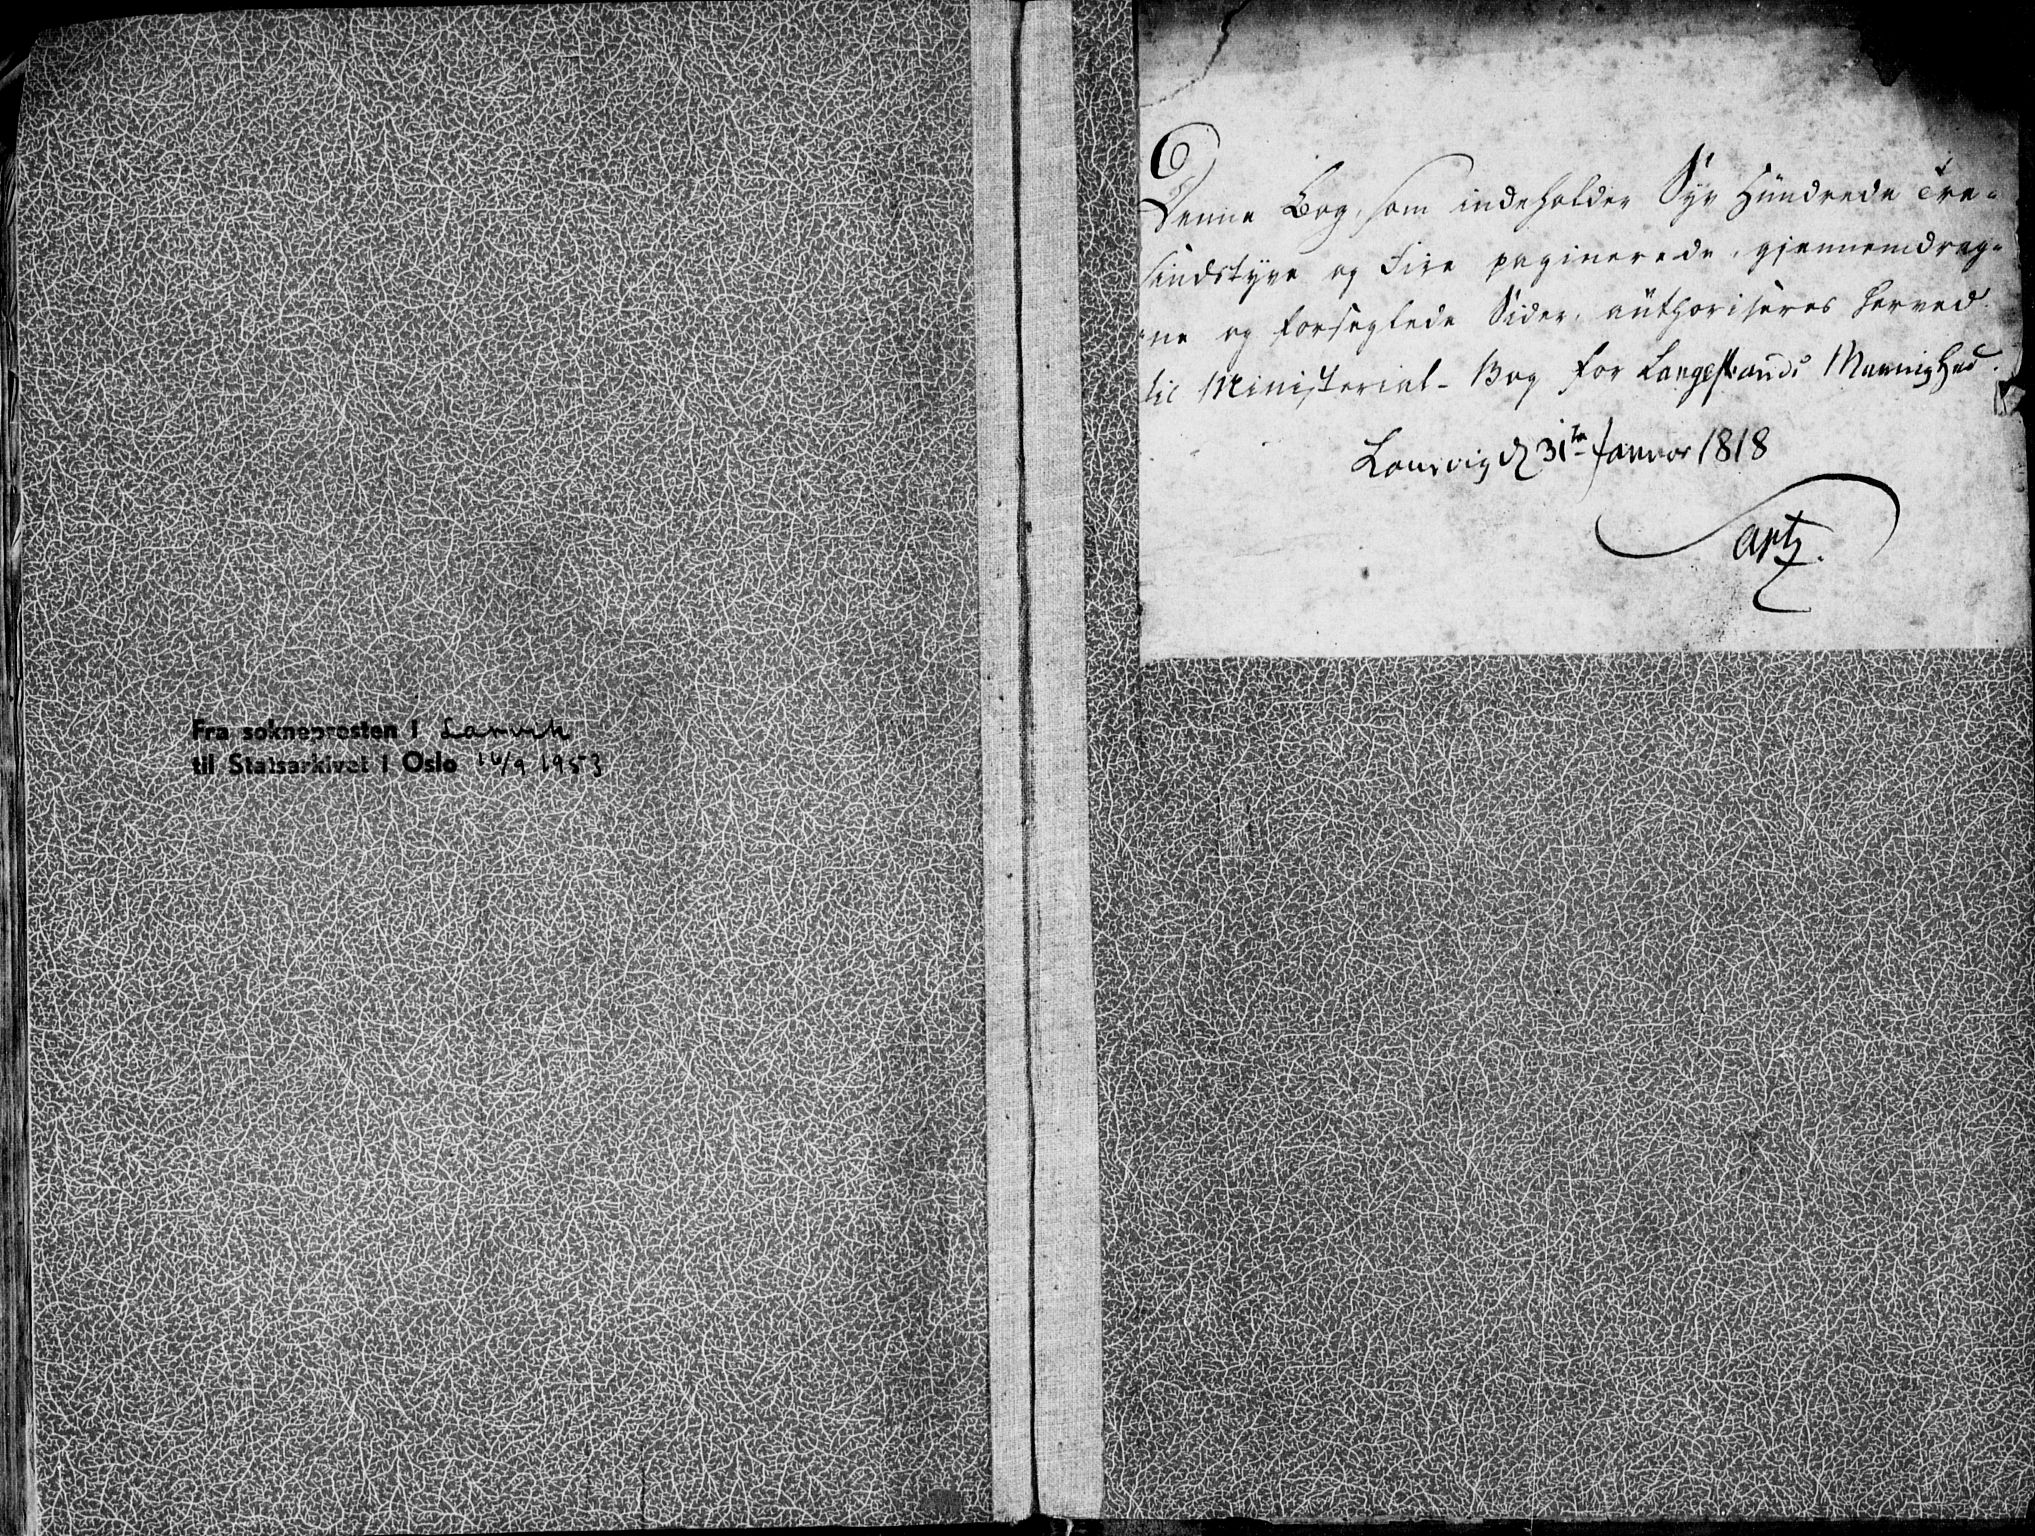 Fra sokneprosten i Larvik
til Statsarkivet i Oslo 16/9 1953
Denne Bog, som indeholder Syv Hundrede Tre-
sindstyve og Fire paginerede, gjennemdrag-
ne og forseglede Sider, authoriseres herved
til Ministerial-Bog for Langestrands Menighed.
Laurvig d 31te Januar 1818